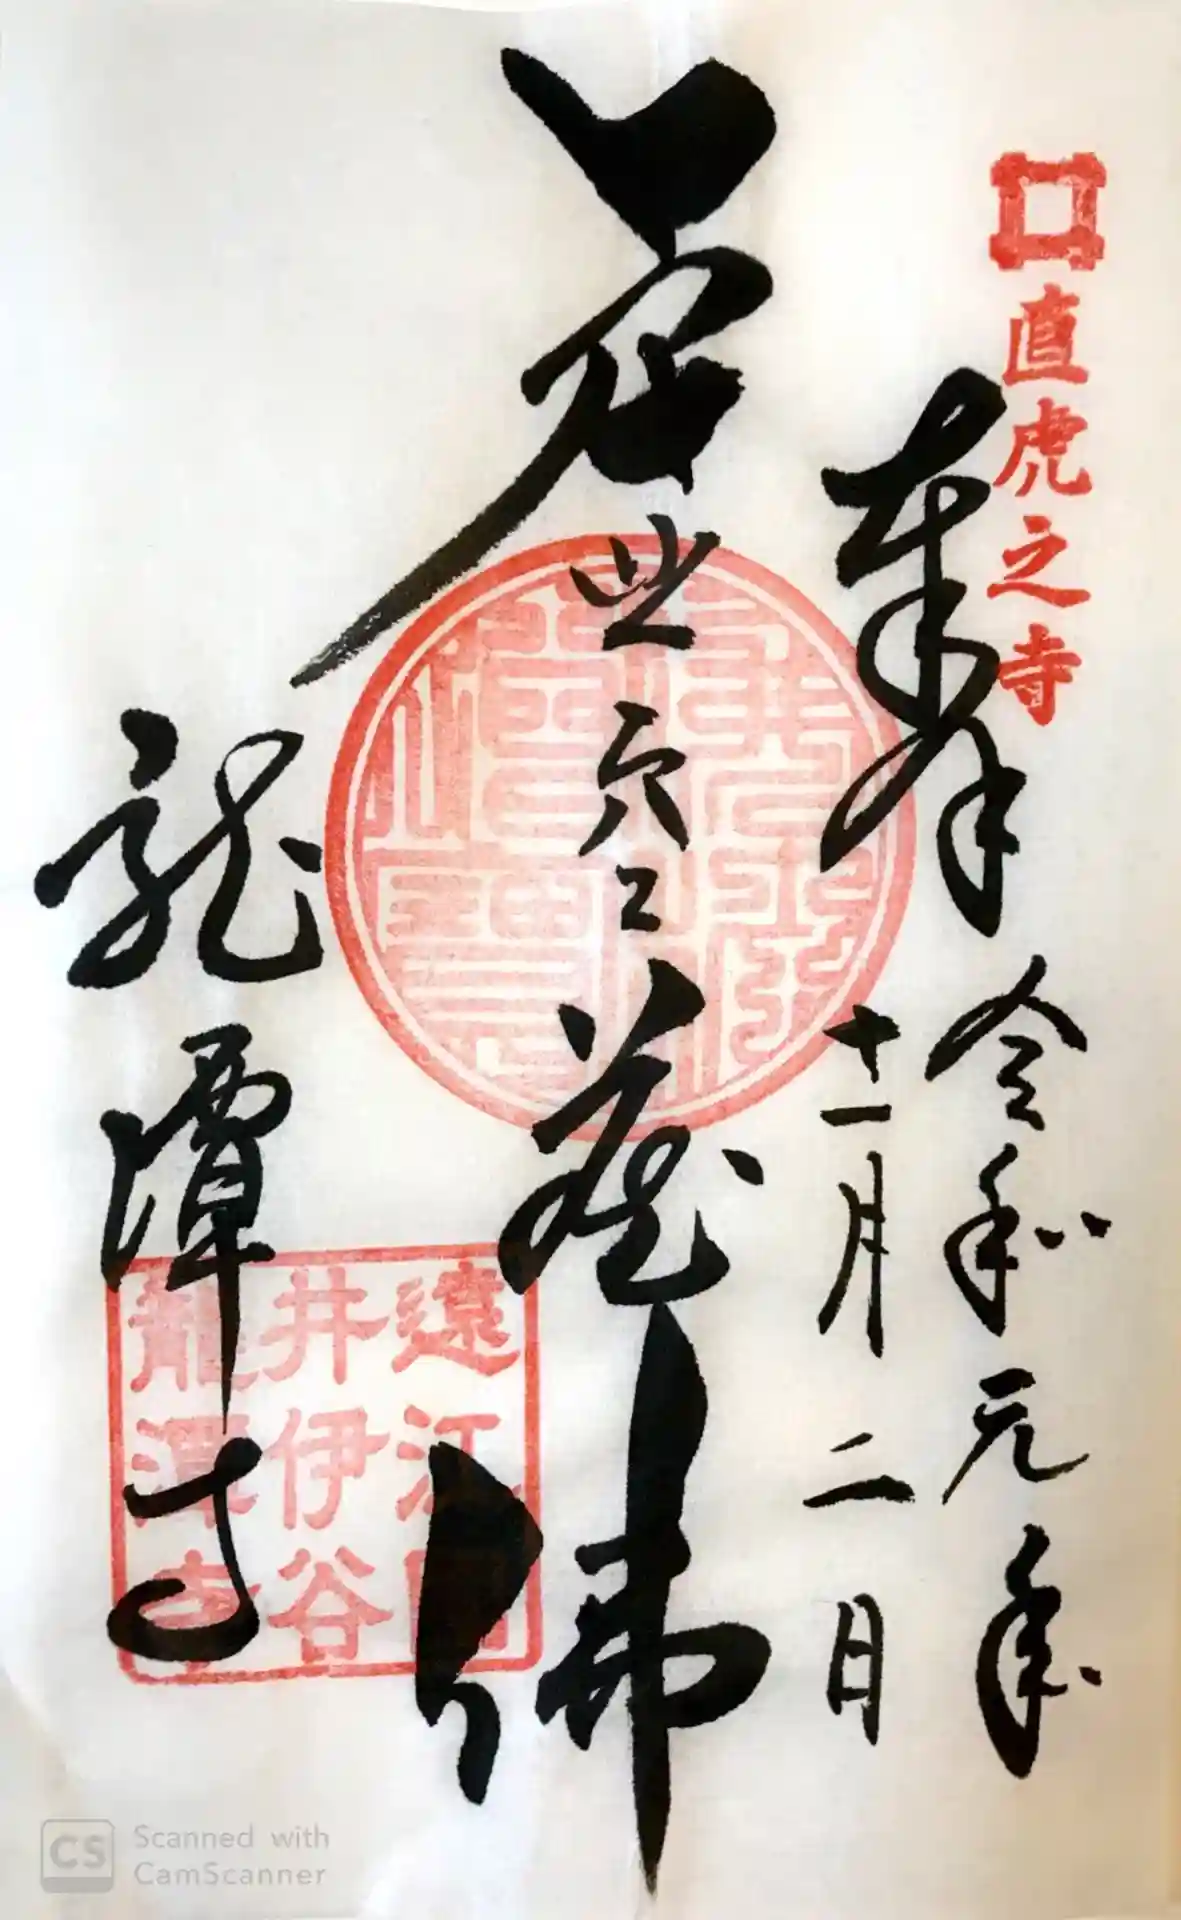 直虎之寺
奉拝
令和元年
十一月二日
虚空蔵佛
龍潭寺
遠江國
井伊谷
龍潭寺
CS Scanned with
CamScanner